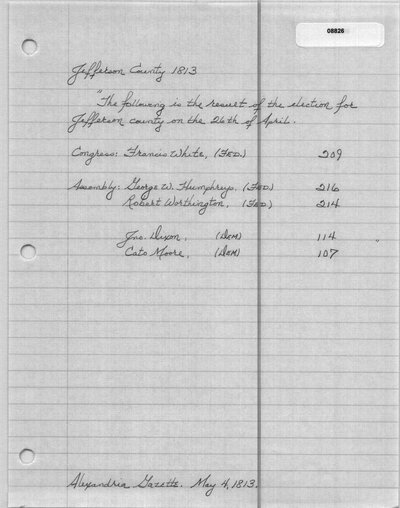 08828
Jefferson County 1813
"The following is the result of the election for
Jefferson county on the 26th of April.
Congress: Francis White, (FED.) 209
Assembly: George W. Humphreys, (FED) 216
Robert Worthington, (FED.) 214
Jno. Dixon, (DEM) 114 "
Cato Moore, (DEM) 107
Alexandria Gazette. May 4, 1813.